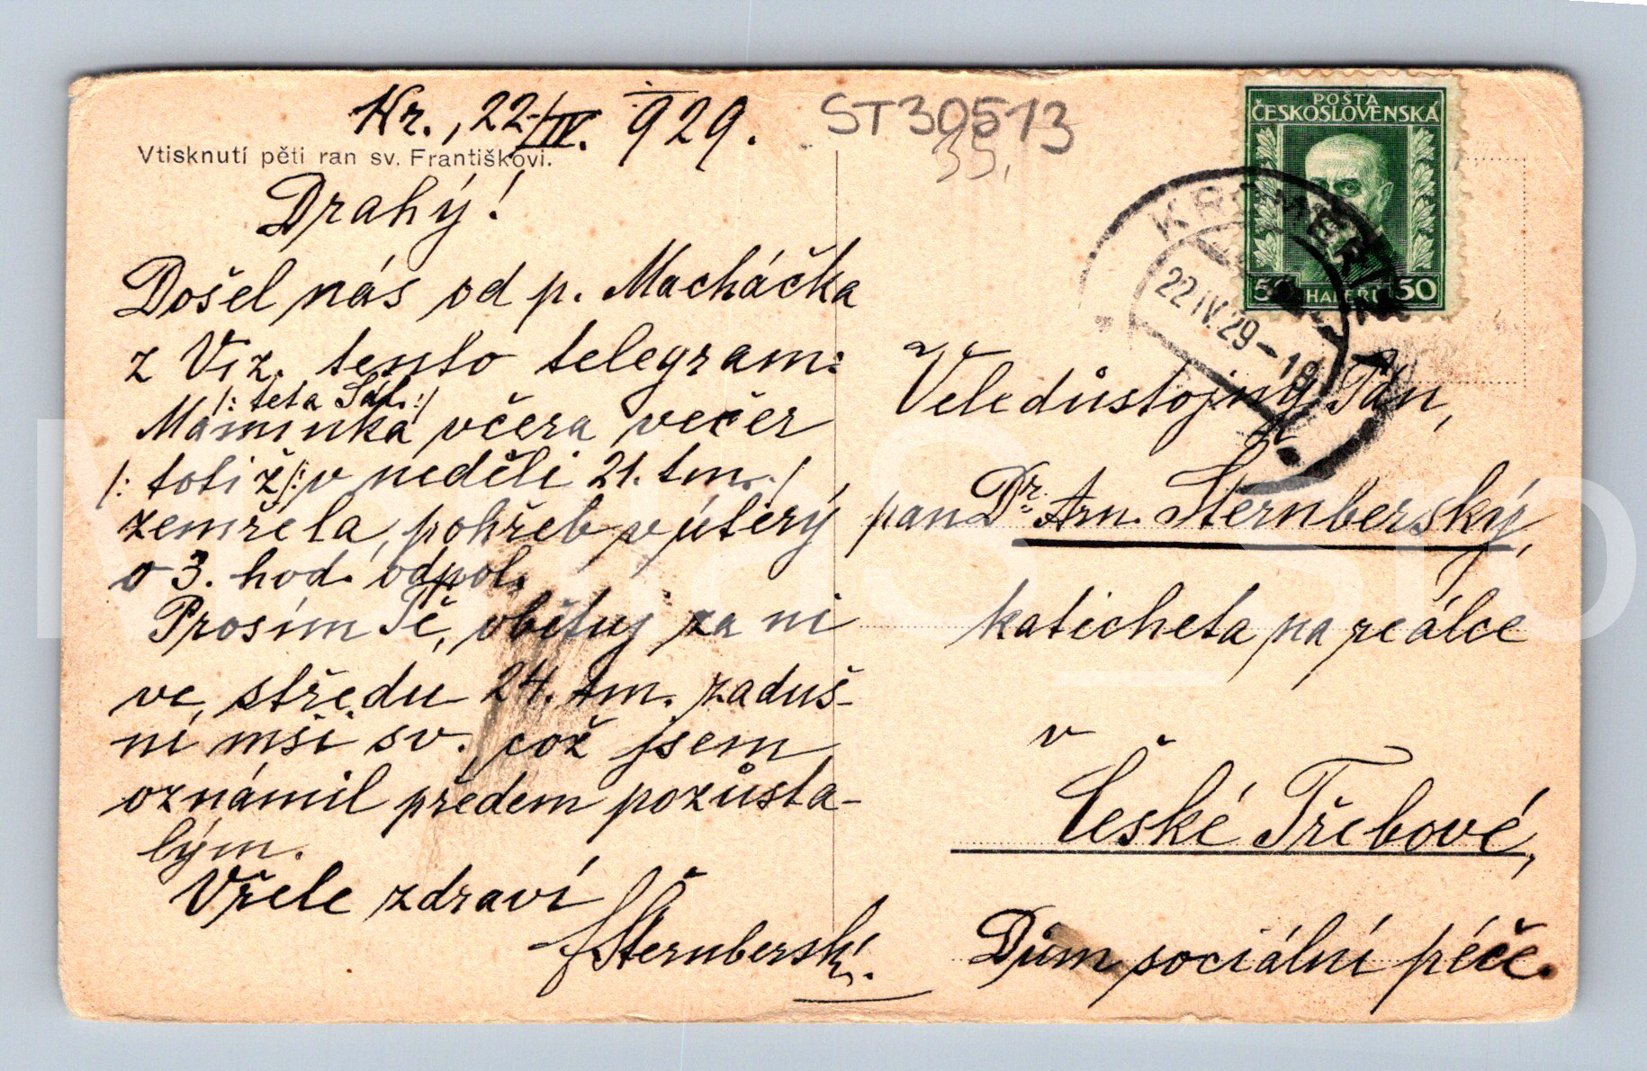 Kr., 22/IV. 929.
ST30513
35,
Vtisknutí pěti ran sv. Františkovi.
Drahý!
Došel nás od p. Macháčka
z Viz. tento telegram:
/: teta Sál. :/
Maminka včera večer
/: totiž :/ v neděli 21. tm. /
zemřela, pohřeb v úterý
o 3. hod. odpol.
Prosím Tě, obětuj za ni
ve středu 24. tm. zaduš-
ní mši sv. což jsem
oznámil předem pozůsta-
lým.
Vřele zdraví
Šternberský.
POŠTA
ČESKOSLOVENSKÁ
50 HALÉŘŮ 50
KROMĚŘÍŽ
22.IV.29-18
Veledůstojný Pán,
pan Dr. Arn. Šternberský,
katecheta na reálce
v
České Třebové,
Dům sociální péče.